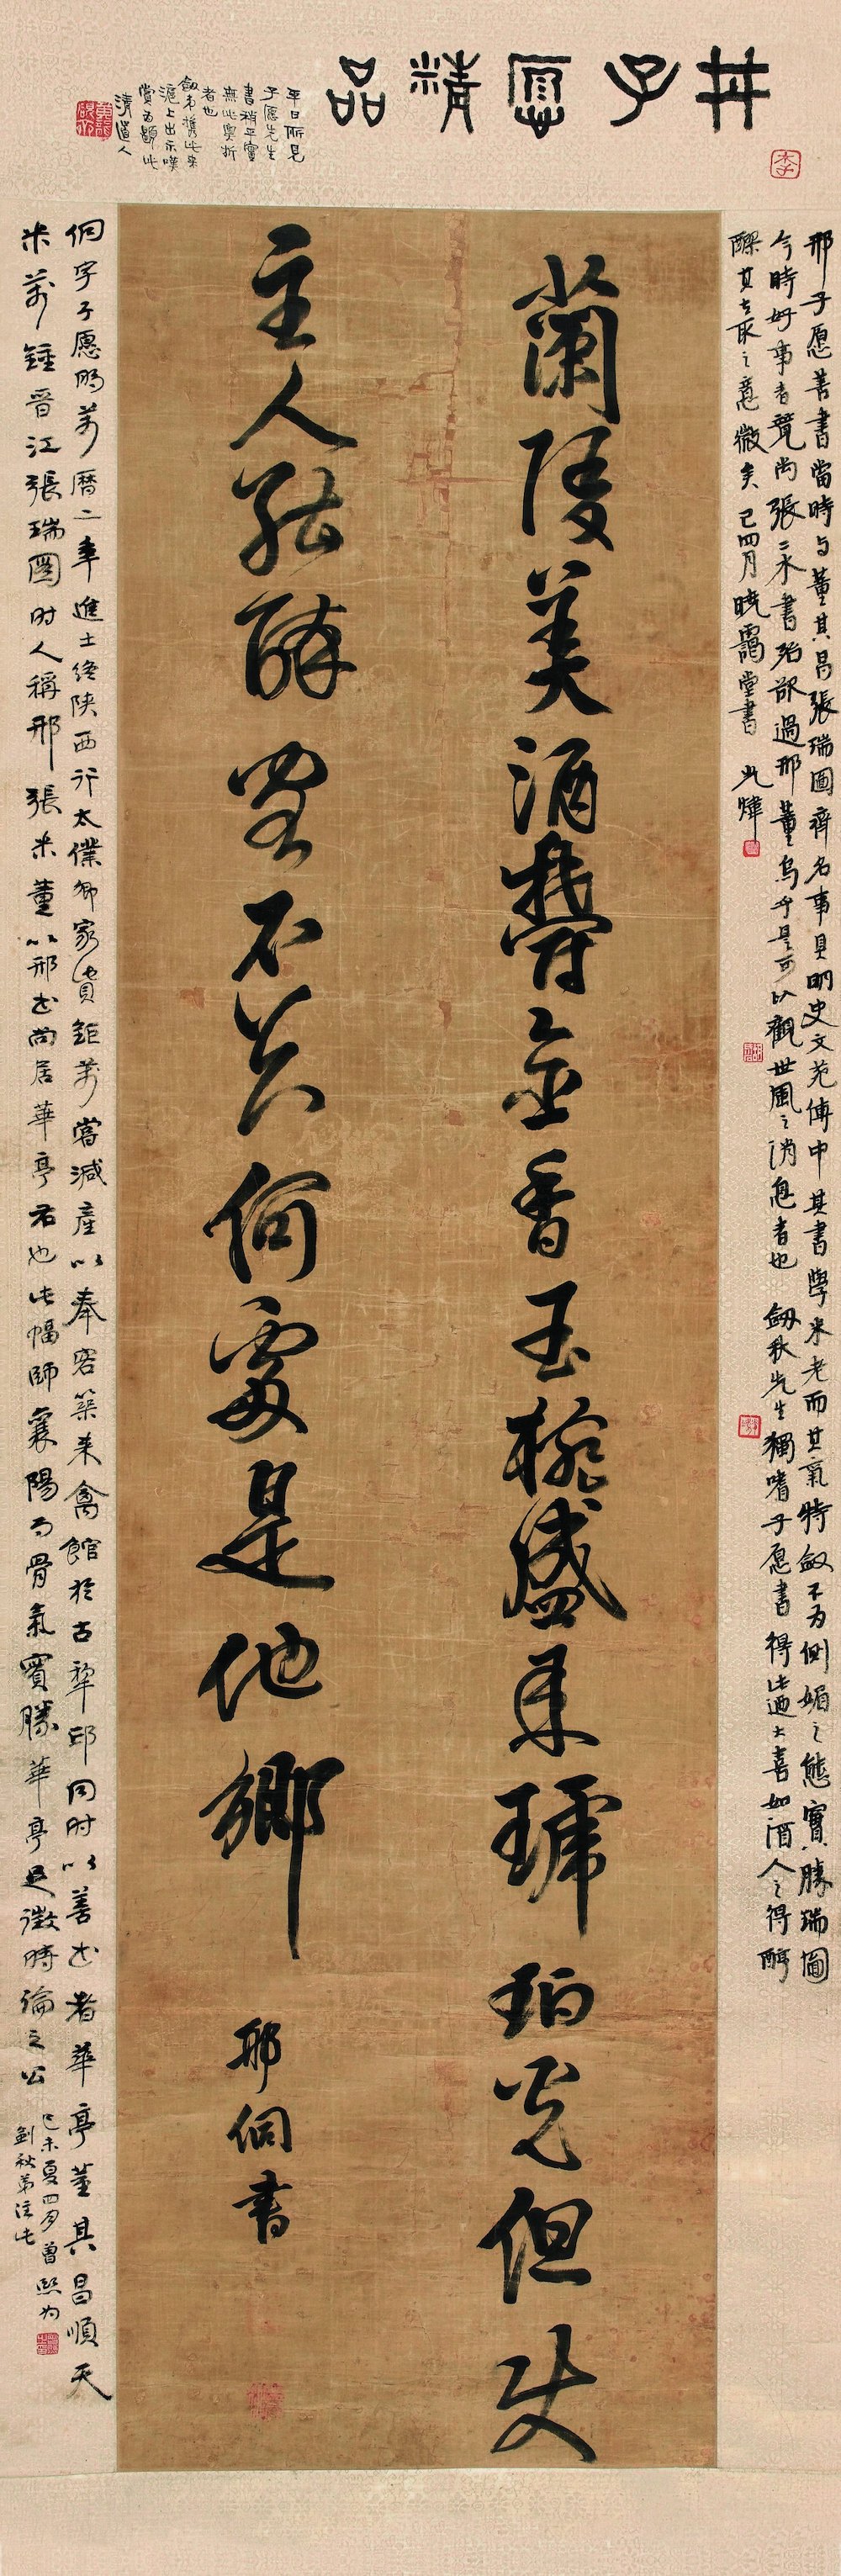 丼子愿精品
平日所見
子愿先生
書稍平實
無此奧折
者也
劍秋攜此來
滬上出示嘆
賞為題此
清道人
邢子愿善書當時与董其昌張瑞圖齊名事具明史文苑傳中其書學米老而其氣特斂不为側媚之態實勝瑞圖
今時好事者竟尚張二水書殆欲過邢董烏乎是可以觀世風之消息者也 劔秋先生獨嗜子愿書得此過大喜如酒人之得醇
醪其去取之意微矣 己四月曉靄堂書 光煒
蘭陵美酒鬱金香玉椀盛來琥珀光但使
主人能醉客不知何處是他鄉 邢侗書
侗字子愿明萬曆二年進士終陝西行太僕卿家貲鉅萬嘗減產以奉客築来禽館於古犂邱同时以善書者華亭董其昌順天
米萬鍾晉江張瑞圖时人稱邢張米董以邢書尚居華亭右也此幅師襄陽而骨氣實勝華亭足徵時論之公 己未夏四月曾熙为
劍秋弟注此